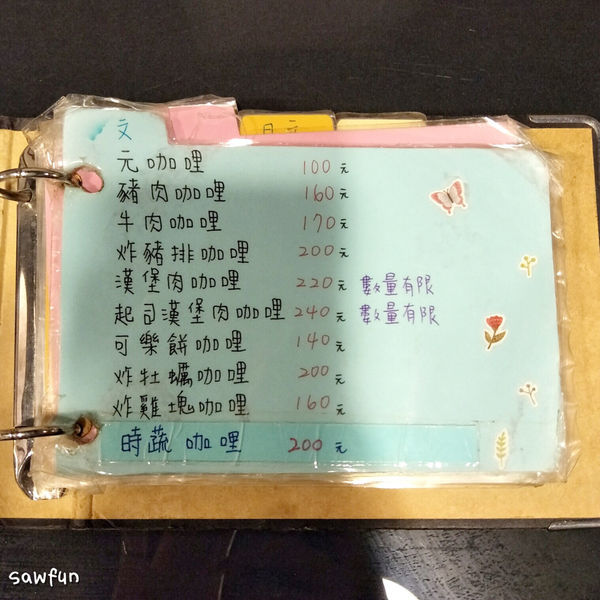 文
元咖哩 100元
豬肉咖哩 160元
牛肉咖哩 170元
炸豬排咖哩 200元
漢堡肉咖哩 220元 數量有限
起司漢堡肉咖哩 240元 數量有限
可樂餅咖哩 140元
炸牡蠣咖哩 200元
炸雞塊咖哩 160元
時蔬咖哩 200元
sawfun